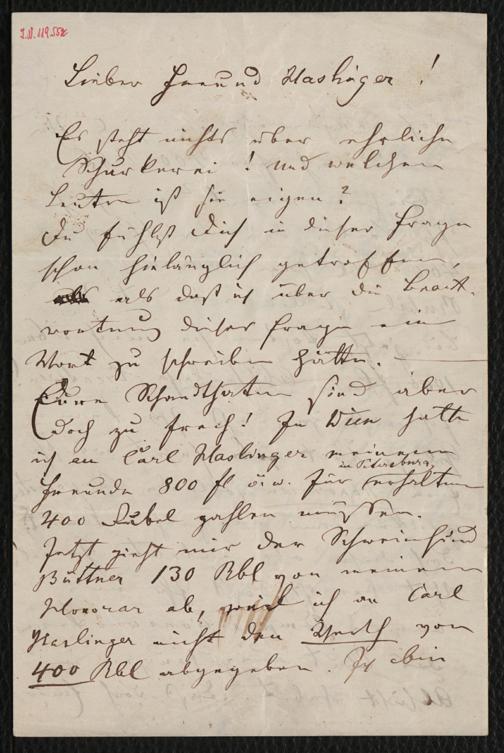 I.N. 119.558
Lieber Freund Haslinger!
Es steht nichts über ehrliche
Schurkerei! Und welchen
Leuten ist sie eigen?
Du fühlst Dich in dieser Frage
schon hinlänglich getroffen,
als daß ich über die Beant-
wortung dieser Frage ein
Wort zu schreiben hätte. —
Eure Schandthaten sind aber
doch zu frech! In Wien hatte
ich an Carl Haslinger meinem
Freunde 800 fl ö.w. für in Petersburg erhaltene
400 Rubel zahlen müssen.
Jetzt zieht mir der Schweinhund
Büttner 130 Rbl von meinem
Honorar ab, weil ich an Carl
Haslinger nicht den Werth von
400 Rbl abgegeben. Ich bin